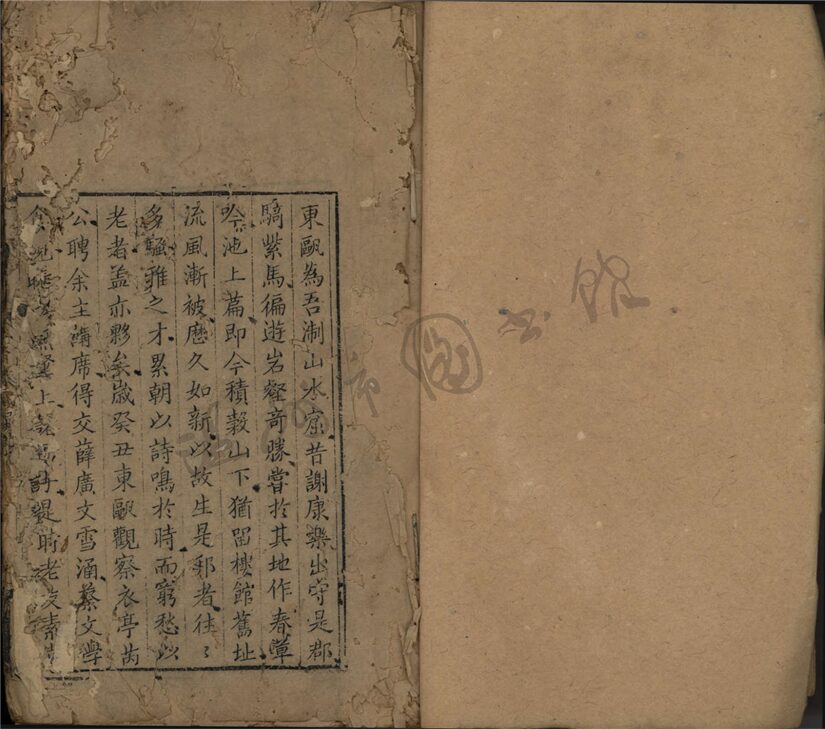 東甌為吾淛山水窟昔謝康樂出守是郡
騎紫馬徧遊岩壑奇勝嘗於其地作春草
吟池上篇即今積穀山下猶留樓館舊址
流風漸被歷久如新以故生是鄉者往〻
多騷雅之才累朝以詩鳴於時而窮愁以
老者盖亦夥矣歲癸丑東甌觀察衣亭芮
公聘余主講席得交薛廣文雪涵蔡文學
上 詩 時老友素
市圖書館